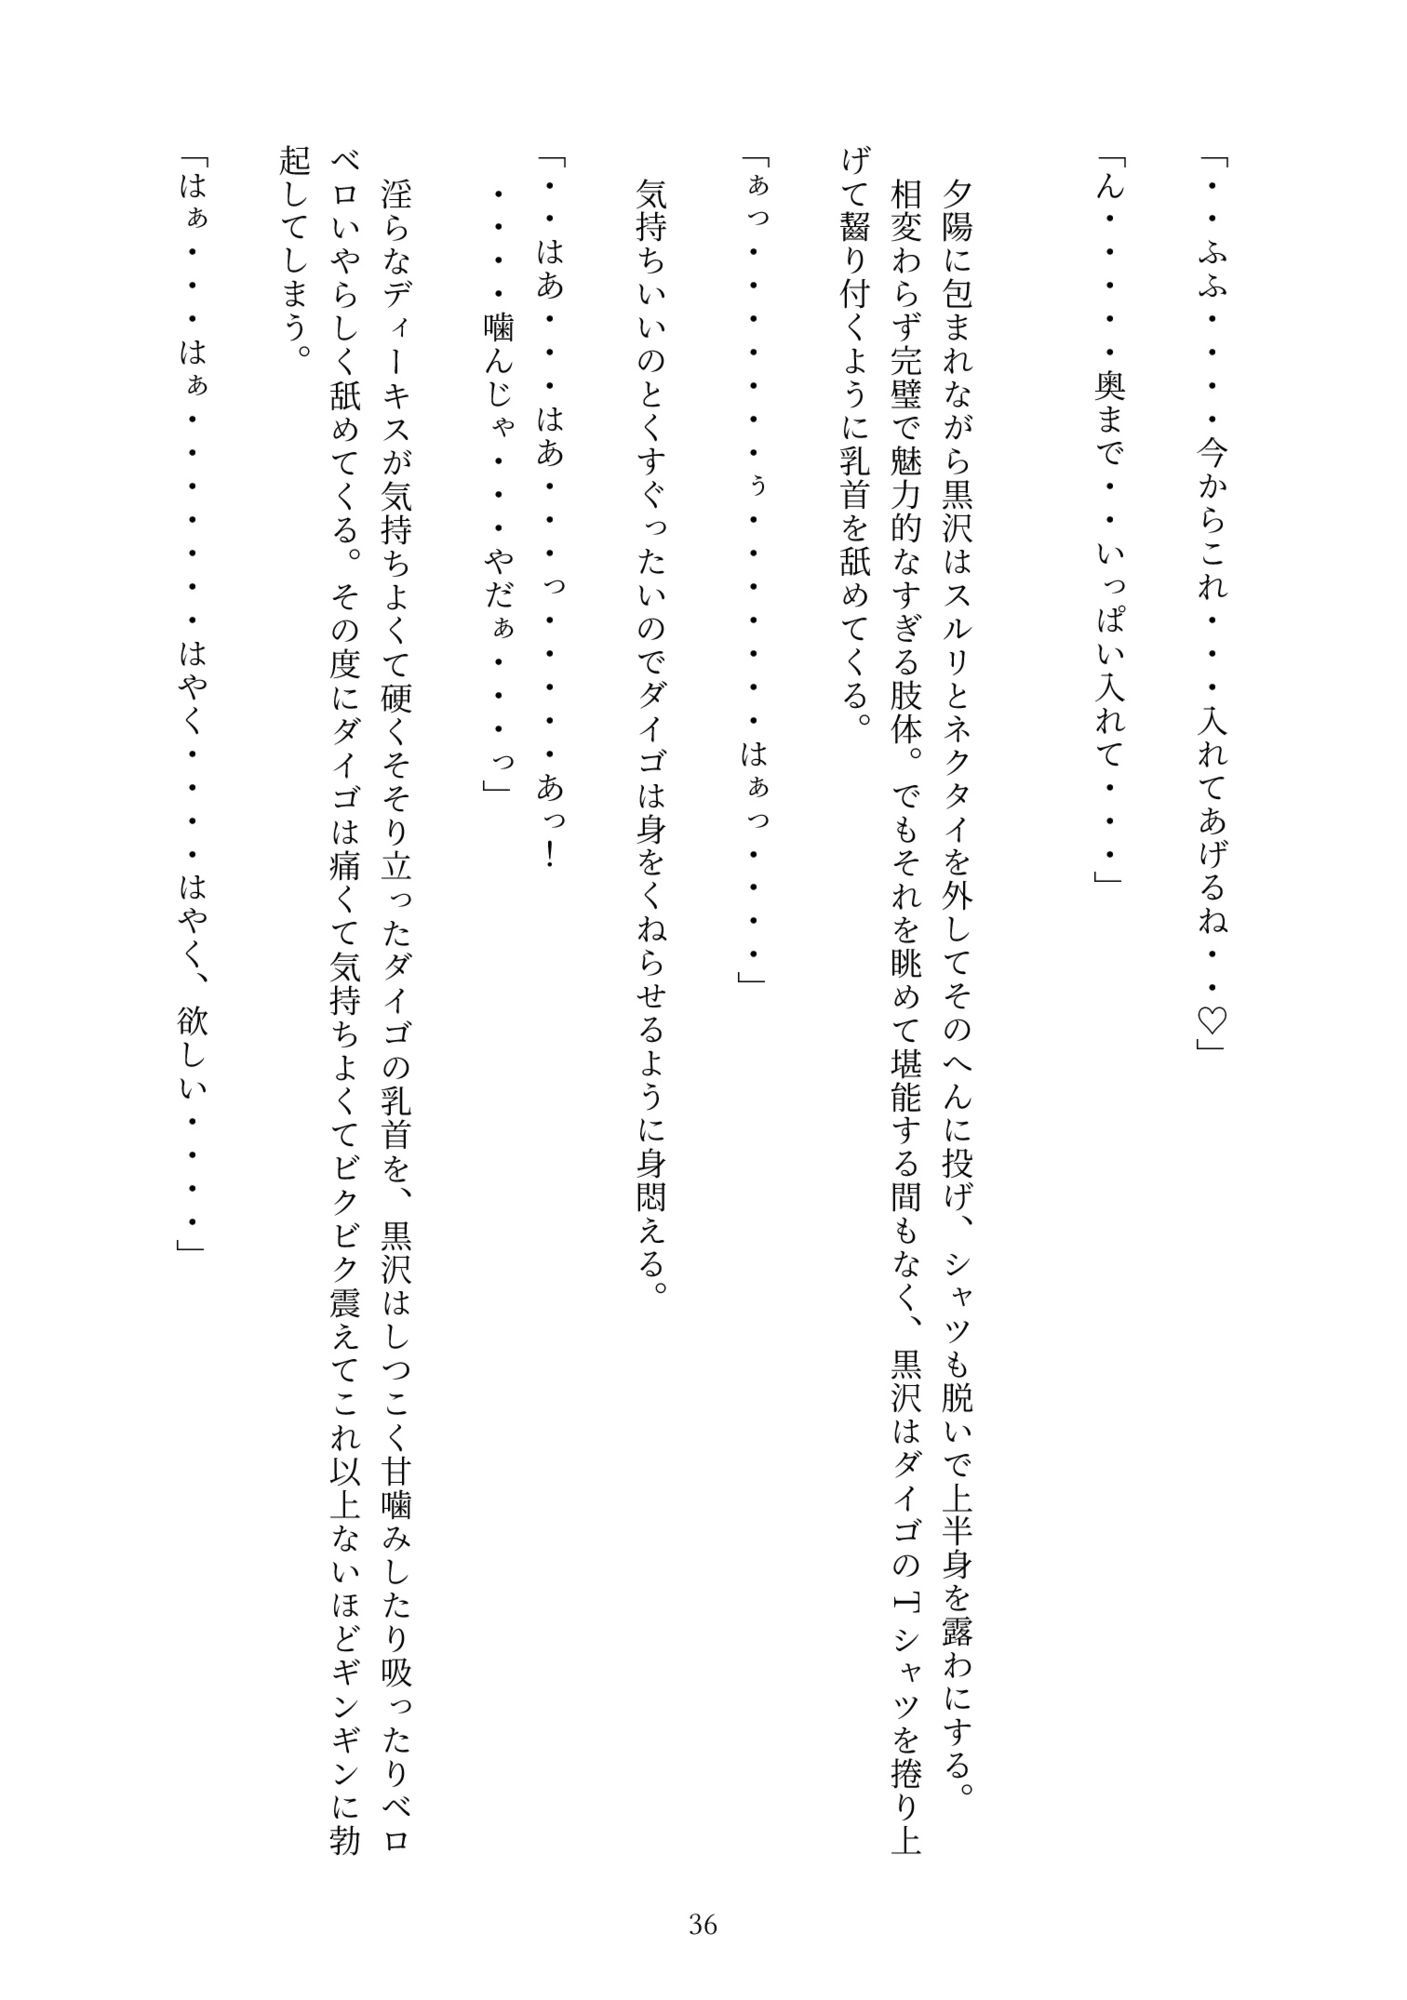 「・・ふふ・・・・今からこれ・・・入れてあげるね・・♡」
「ん・・・・・奥まで・・いっぱい入れて・・・」
夕陽に包まれながら黒沢はスルリとネクタイを外してそのへんに投げ、シャツも脱いで上半身を露わにする。
相変わらず完璧で魅力的なすぎる肢体。でもそれを眺めて堪能する間もなく、黒沢はダイゴのTシャツを捲り上
げて齧り付くように乳首を舐めてくる。
「ぁっ・・・・・・・ぅ・・・・・・・はぁっ・・・・」
気持ちいいのとくすぐったいのでダイゴは身をくねらせるように身悶える。
「・・はあ・・・はあ・・・っ・・・・・あっ！
・・・・噛んじゃ・・・やだぁ・・・っ」
淫らなディーキスが気持ちよくて硬くそそり立ったダイゴの乳首を、黒沢はしつこく甘噛みしたり吸ったりベロ
ベロいやらしく舐めてくる。その度にダイゴは痛くて気持ちよくてビクビク震えてこれ以上ないほどギンギンに勃
起してしまう。
「はぁ・・・はぁ・・・・・・・はやく・・・・はやく、欲しい・・・・」
36